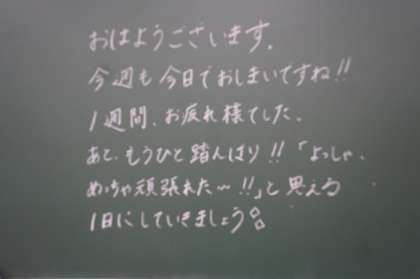 おはようございます。
今週も今日でおしまいですね!!
1週間、お疲れ様でした。
あと、もうひと踏んばり!!「よっしゃ、
めっちゃ頑張れた〜!!」と思える
1日にしていきましょう。